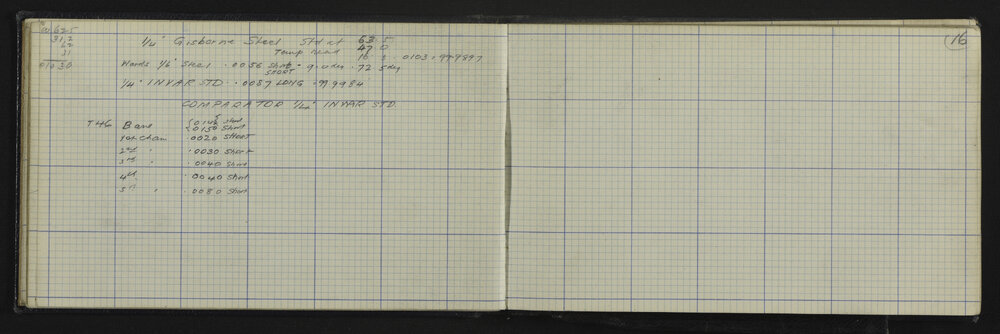 625
31.2
62
31
01030
1/4" Gisborne Steel Std at 63.5
Temp head 47 0
16 5 .0103 . 99.9897
Wards 1/6" Steel . .0056 Short = 9 . 72 5 deg
SHORT
1/4" INVAR STD . .0087 LONG = 99 9984
COMPARATOR 1/4" INVAR STD.
T46 Base { 0145 short
.0150 Short
1st Chain .0020 SHORT
2nd " .0030 Short
3rd " .0040 Short
4th .0040 Short
5th " .0080 Short
16